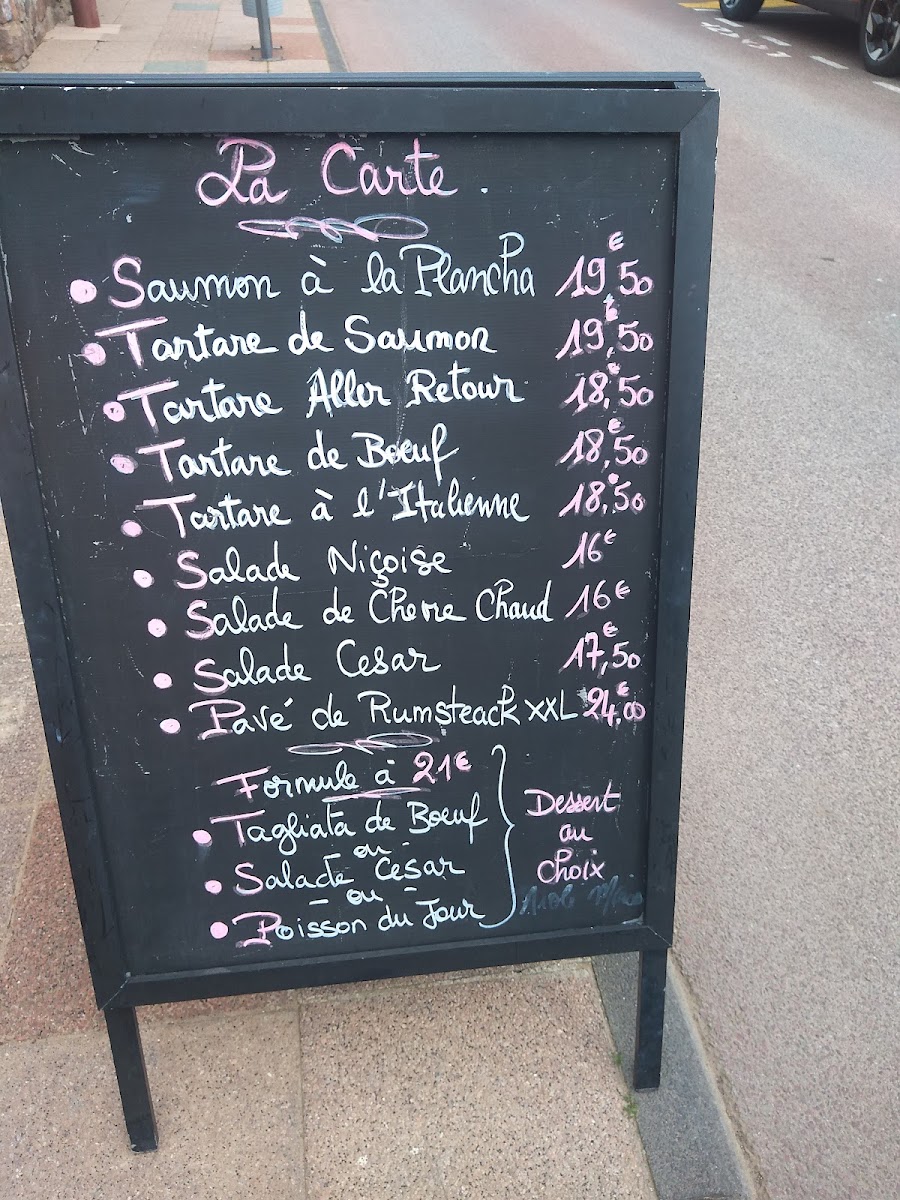 La Carte.
Saumon à la Plancha 19€,50
Tartare de Saumon 19€,50
Tartare Aller Retour 18€,50
Tartare de Boeuf 18€,50
Tartare à l'Italienne 18,50
Salade Niçoise 16€
Salade de Chevre Chaud 16€
Salade Cesar 17€,50
Pavé de Rumsteack XXL 24€,00
Formule à 21€
Tagliata de Boeuf
ou
Salade Cesar
- ou -
Poisson du Jour
Dessert
au
choix